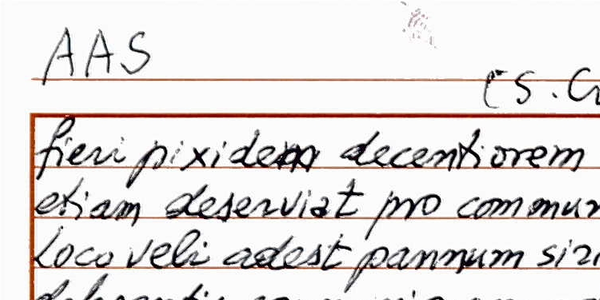 AAS
fieri pixidem decentiorem
etiam deserviat pro commun
Loco veli adest pannum